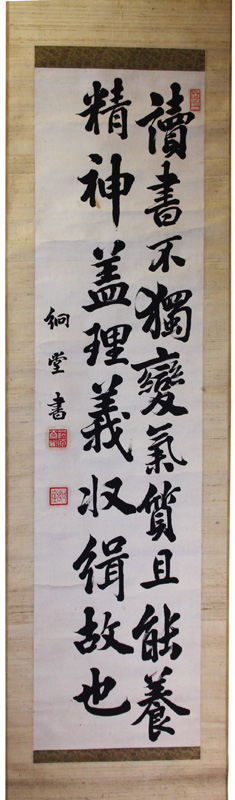 讀書不獨變氣質且能養
精神蓋理義收緝故也
絅堂書